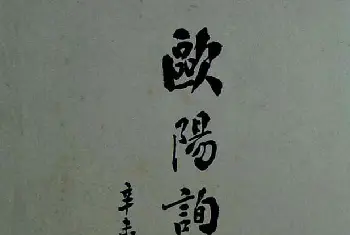 歐陽詢
辛未